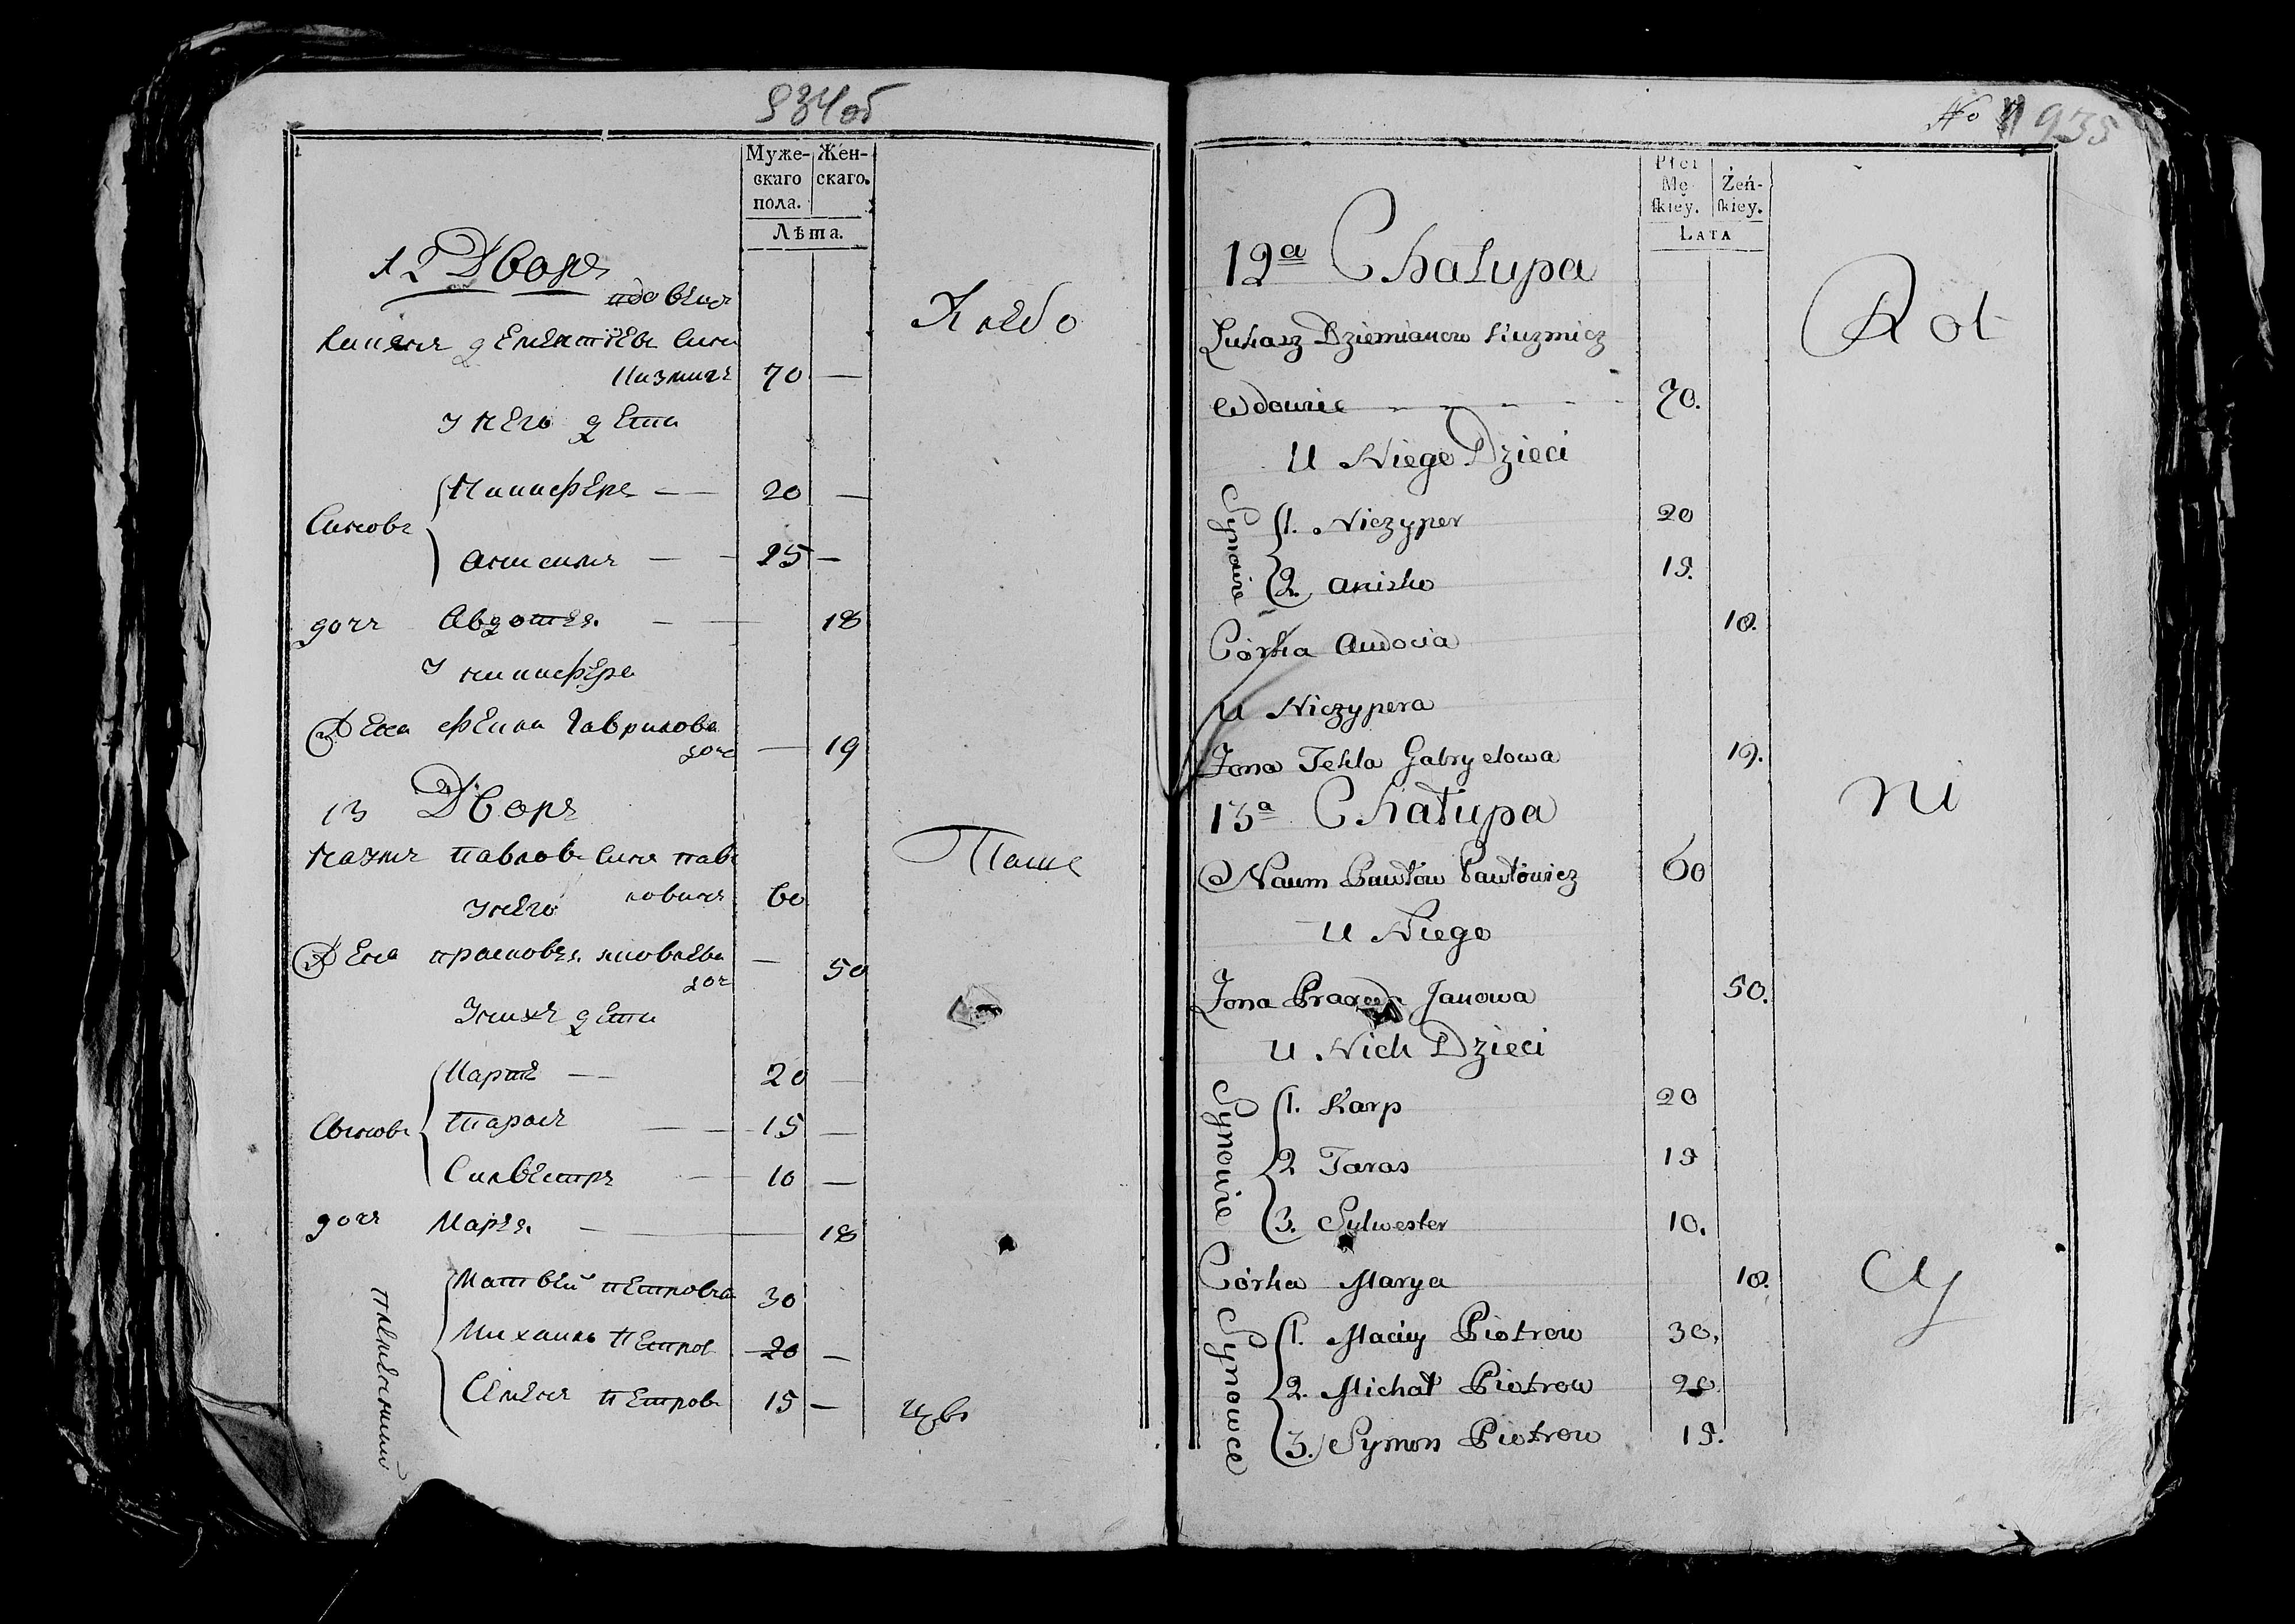 934об
Муже- Жен-
скаго скаго.
пола.
Лѣта.
12 Дворъ
вдовецъ
сынъ
Кузмичъ 70 —
У него дети
Никиферъ — — 20 —
Сыновъ
Анисимъ — — 15 —
дочь Авдотья — — 18
У Никифера
Жена Гаврилова
дочь — 19
13 Дворъ
Наумъ Павловъ сынъ Павъ
У него ловичъ 60
Жена Прасковья
дочь — 50
У нихъ дети
Карпъ — 20 —
Сыновъ Тарасъ — — 15 —
Сильвестръ — 10 —
дочь Марья — 18
Племенники
Матвей Петровъ 30
Михаилъ Петров 20 —
Семенъ Петровъ 15 —
No 935
Płci
Mę- Żeń-
skiey. skiey.
LATA
12a Chałupa
Łukasz Dziemianow Kuzmicz
Wdowiec 70.
U Niego Dzieci
Synowie
1. Niczyper 20
2. Anisko 15.
Córka Audocia 18.
U Niczypera
Żona Tekla Gabryelowa 19.
13a Chałupa
Naum Pawłów Pawłowicz 60
U Niego
Żona Janowa 50.
U Nich Dzieci
Synowie
1. Karp 20
2 Taras 15
3. Sylwester 10.
Córka Marya 18.
Synowce
1. Maciey Piotrow 30.
2. Michał Piotrow 20
3. Symon Piotrow 15.
Rot
ni
cy